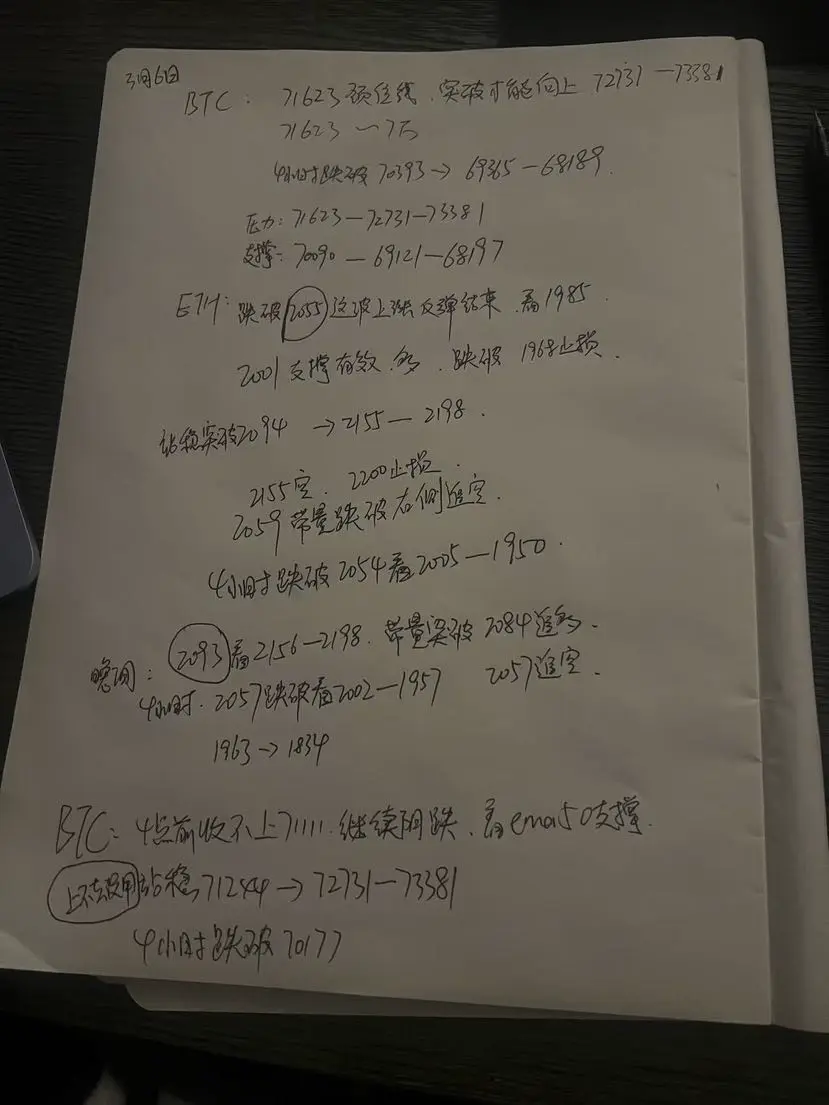 3月6日
BTC: 71623颈位线.突破才能向上 72731—73381
71623—7万
4小时跌破 70393→69365—68189.
压力: 71623—72731—73381
支撑: 70090—69121—68197
ETH: 跌破2055这波上涨反弹结束.看1985.
2001支撑有效.多.跌破 1968止损.
站稳突破2094→2155—2198.
2155空. 2200止损.
2059带量跌破右侧追空.
4小时跌破2054看2005—1950.
晚间: 2093看2156—2198.带量突破2084追多.
4小时.2057跌破看2002—1957 2057追空.
1963→1834
BTC: 4点前收不上71111.继续阴跌.看ema50支撑.
上不去没用 站稳71244→72731—73381
4小时跌破70177